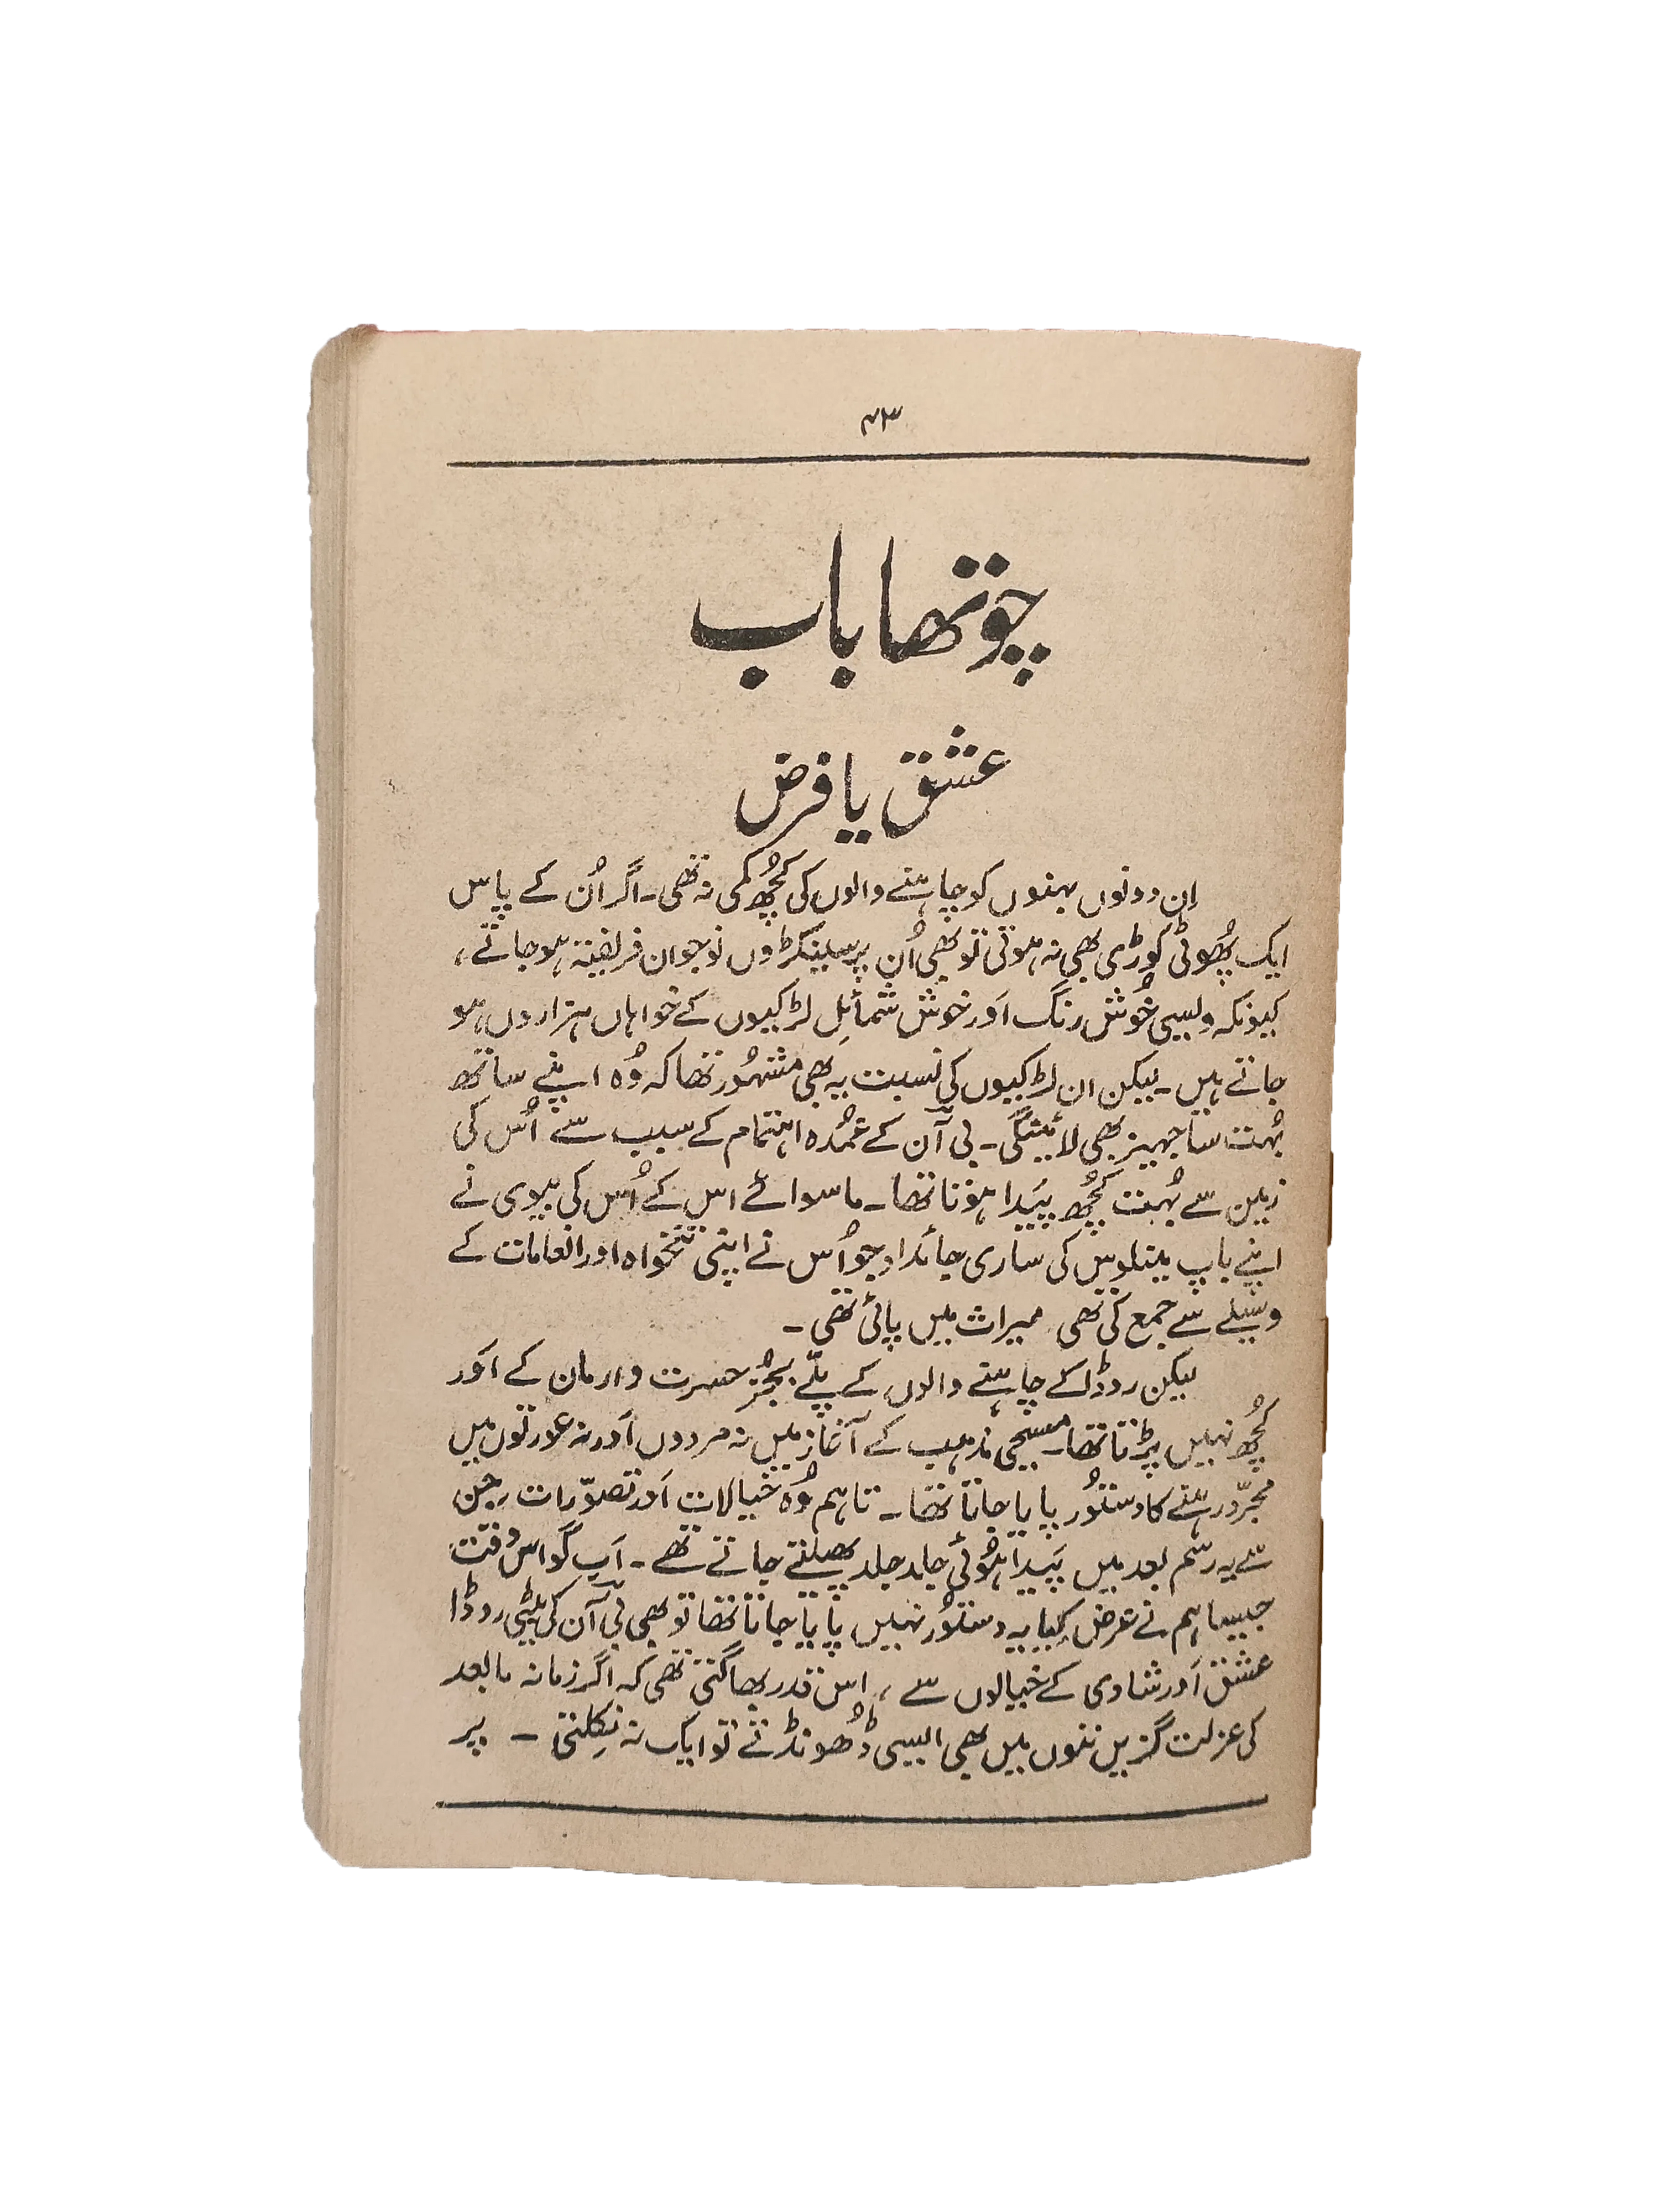 ۴۳
چوتھا باب
عشق یا فرض
اِن دونوں بہنوں کو چاہنے والوں کی کُچھ کمی نہ تھی۔ اگر اُن کے پاس
ایک پُھوٹی کوڑی بھی نہ ہوتی تو بھی اُن پر سینکڑوں نوجوان فریفتہ ہو جاتے،
کیونکہ ویسی خُوش رنگ اَور خوش شمائلِ لڑکیوں کے خواہاں ہزاروں ہو
جاتے ہیں۔ لیکن ان لڑکیوں کی نسبت یہ بھی مشہُور تھا کہ وُہ اپنے ساتھ
بُہت سا جہیز بھی لائینگی۔ بی آن کے عُمدہ اہتمام کے سبب سے اُس کی
زمین سے بُہت کُچھ پَیدا ہوتا تھا۔ ماسوائے اس کے اُس کی بیوی نے
اپنے باپ مینلوس کی ساری جائداد جو اُس نے اپنی تنخواہ اور انعامات کے
وسیلے سے جمع کی تھی میراث میں پائی تھی۔
لیکن روڈا کے چاہنے والوں کے پلّے بجُز حسرت و ارمان کے اَور
کُچھ نہیں پڑتا تھا۔ مسیحی مذہب کے آغاز میں نہ مردوں اَور نہ عورتوں میں
مجرّد رہنے کا دستُور پایا جاتا تھا۔ تاہم وُہ خیالات اَور تصوّرات جن
سے یہ رسم بعد میں پَیدا ہُوئی جلد جلد پھیلتے جاتے تھے۔ اَب گو اس وقت
جیسا ہم نے عرض کِیا یہ دستُور نہیں پایا جاتا تھا تو بھی بی آن کی بیٹی روڈا
عشق اَور شادی کے خیالوں سے، اس قدر بھاگتی تھی کہ اگر زمانہ مابعد
کی عزلت گزینوں میں بھی ایسی ڈُھونڈتے تو ایک نہ نِکلتی۔ پر